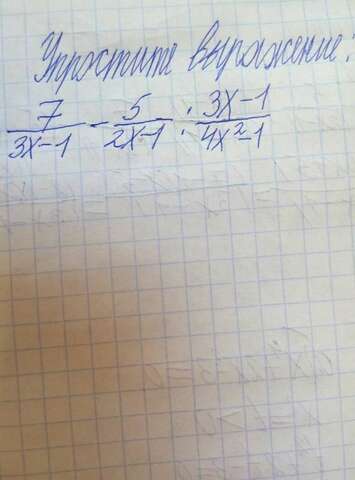 Упростите выражение:
7/(3x-1) - 5/(2x-1) : (3x-1)/(4x²-1)